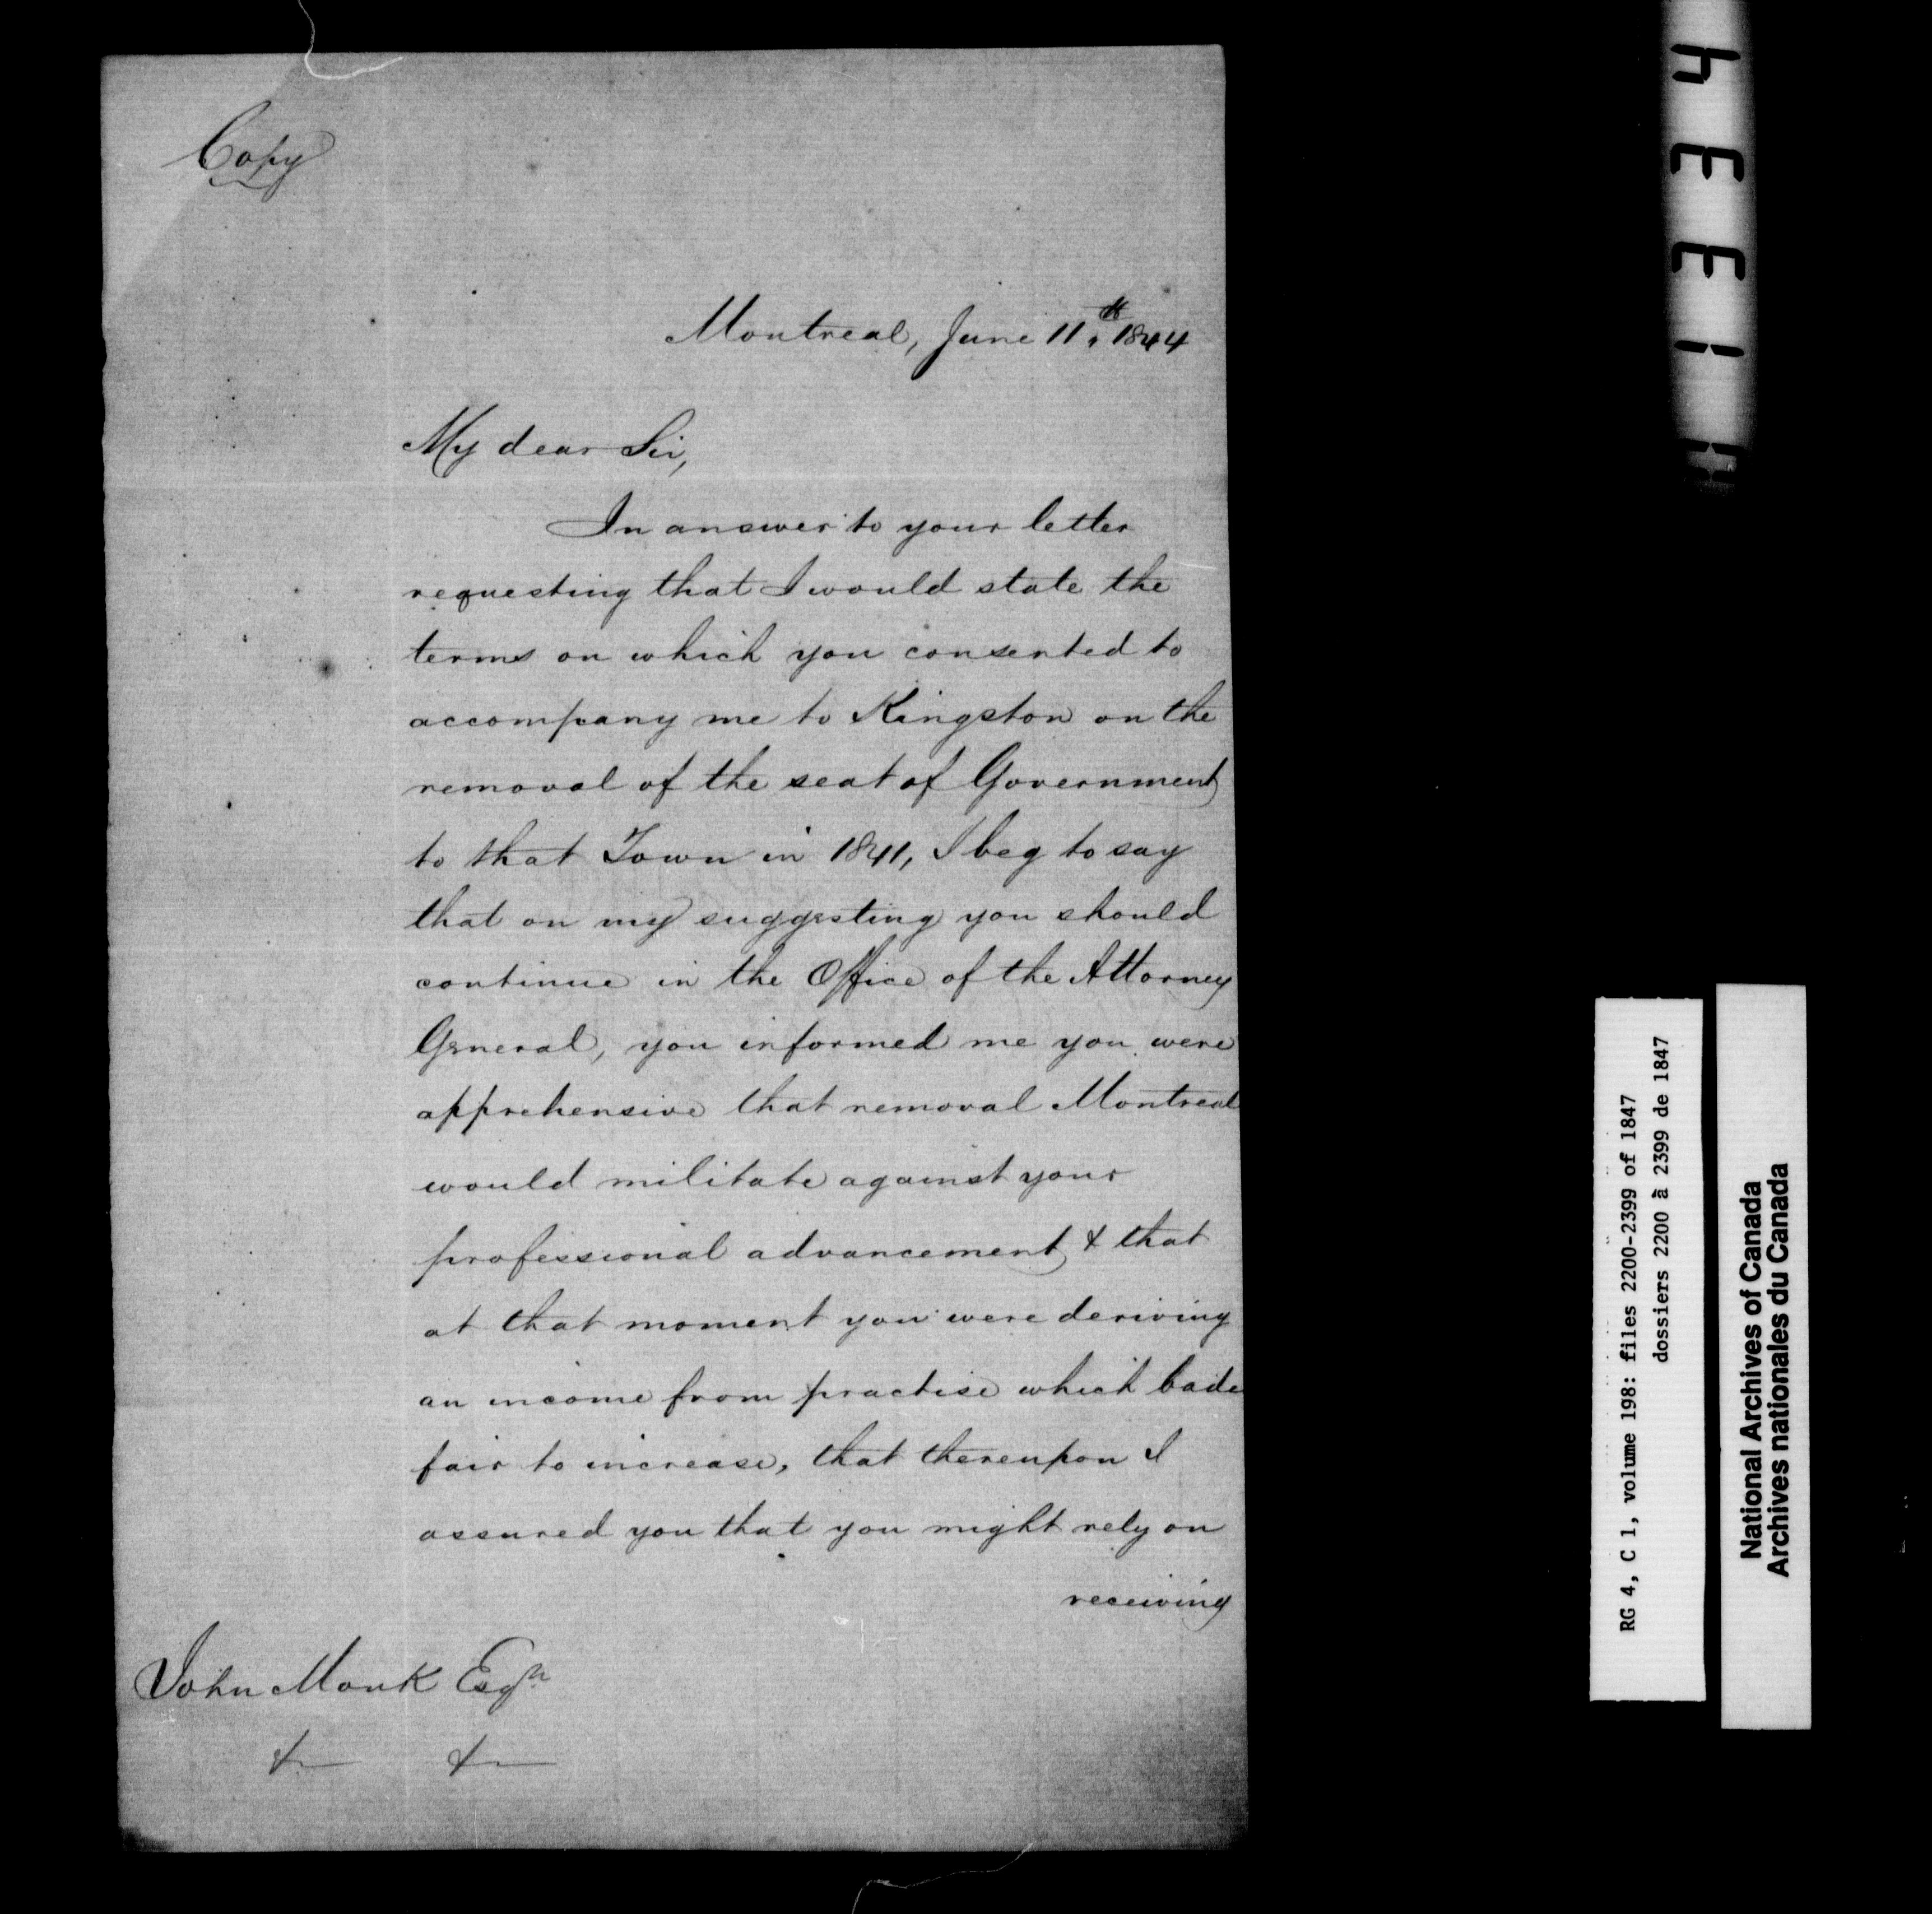 Copy
Montreal, June 11th. 1844
My dear Sir,
In answer to your letter
requesting that I would state the
terms on which you consented to
accompany me to Kingston on the
removal of the seat of Government
to that Town in 1841, I beg to say
that on my suggesting you should
continue in the Office of the Attorney
General, you informed me you were
apprehensive that removal Montreal
would militate against your
professional advancement & that
at that moment you were deriving
an income from practise which bade
fair to increase, that thereupon I
assured you that you might rely on
receiving
John Monk Esqre
&— &—
RG 4, C 1, volume 198: files 2200-2399 of 1847
dossiers 2200 à 2399 de 1847
National Archives of Canada
Archives nationales du Canada